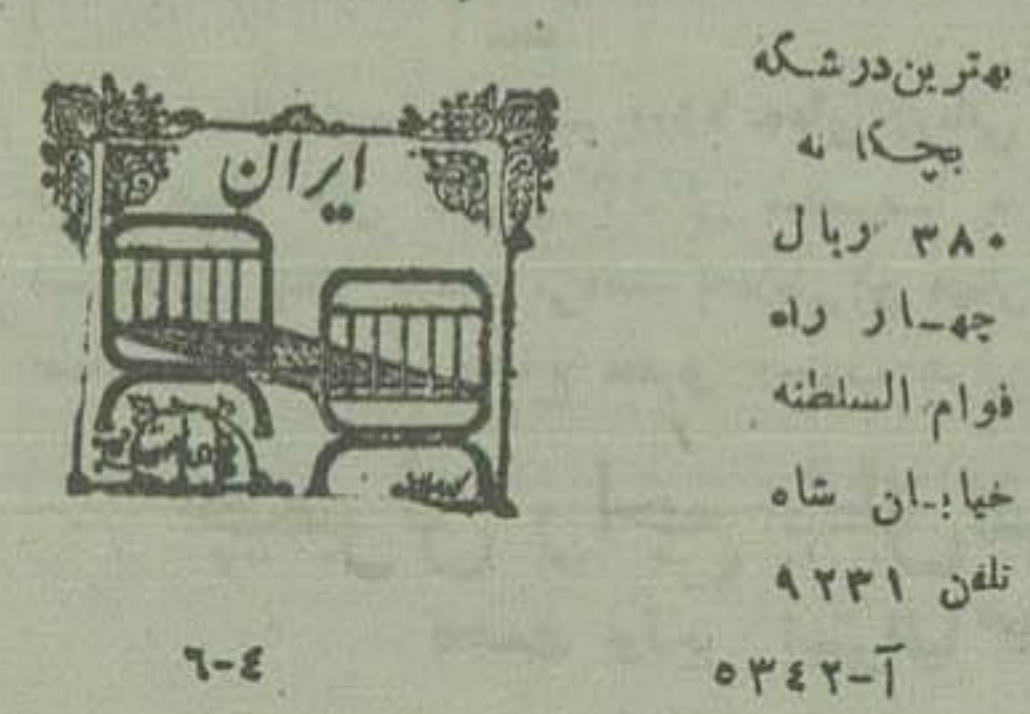 ایران
بهترین درشکه
بچگانه
۳۸۰ ریال
چهار راه
قوام السلطنه
خیابان شاه
تلفن ۹۲۳۱
آ-۵۳٤۲
٦-٤